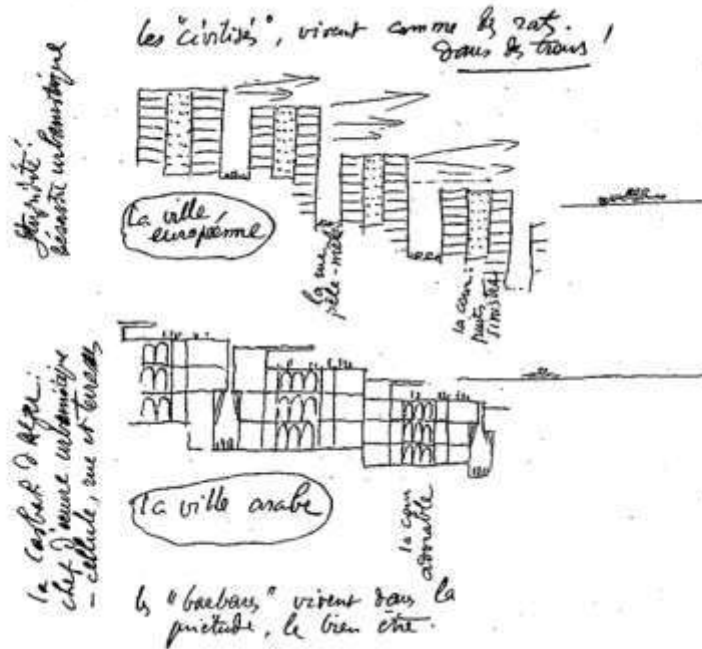 les "civilisés", vivent comme les rats
dans des trous !
Stupidité !
désastre urbanistique
la ville
européenne
la rue
pêle-mêle
la cour :
puits
sinistres
la Casbah d'Alger :
chef d'œuvre urbanistique
– cellule, rue et terrasses
la ville arabe
la cour
adorable
les "barbares" vivent dans la
quiétude, le bien être.